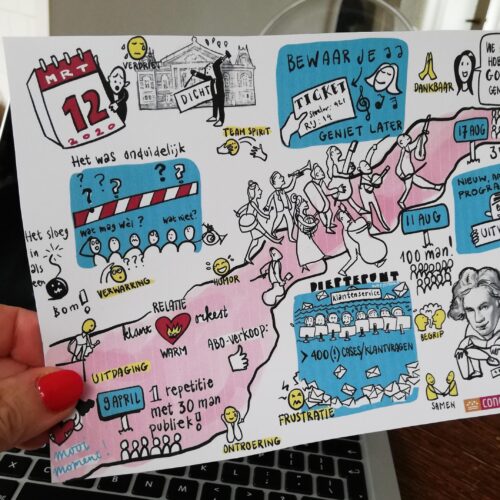 MRT
12
2020
VERDRIET
DICHT
BEWAAR JE
TICKET
Rij: 14
GENIET LATER
DANKBAAR
WE
17 AUG
TEAM SPIRIT
Het was onduidelijk
? ? ? ?
wat mag wèl?
wat niet?
Het sloeg
in
als
een
Bom!
VERWARRING
HUMOR
11 AUG
NIEUW, AA
PROGRA
UITV
100 man!
RELATIE
klant
orkest
WARM
ABO-VERKOOP:
PIETTEPUNT
klantenservice
> 400(!) CASES/KLANTVRAGEN
BEGRIP
UITDAGING
9 APRIL
1 repetitie
met 30 man
publiek!
mooi
moment!
ONTROERING
FRUSTRATIE
SAMEN
CON